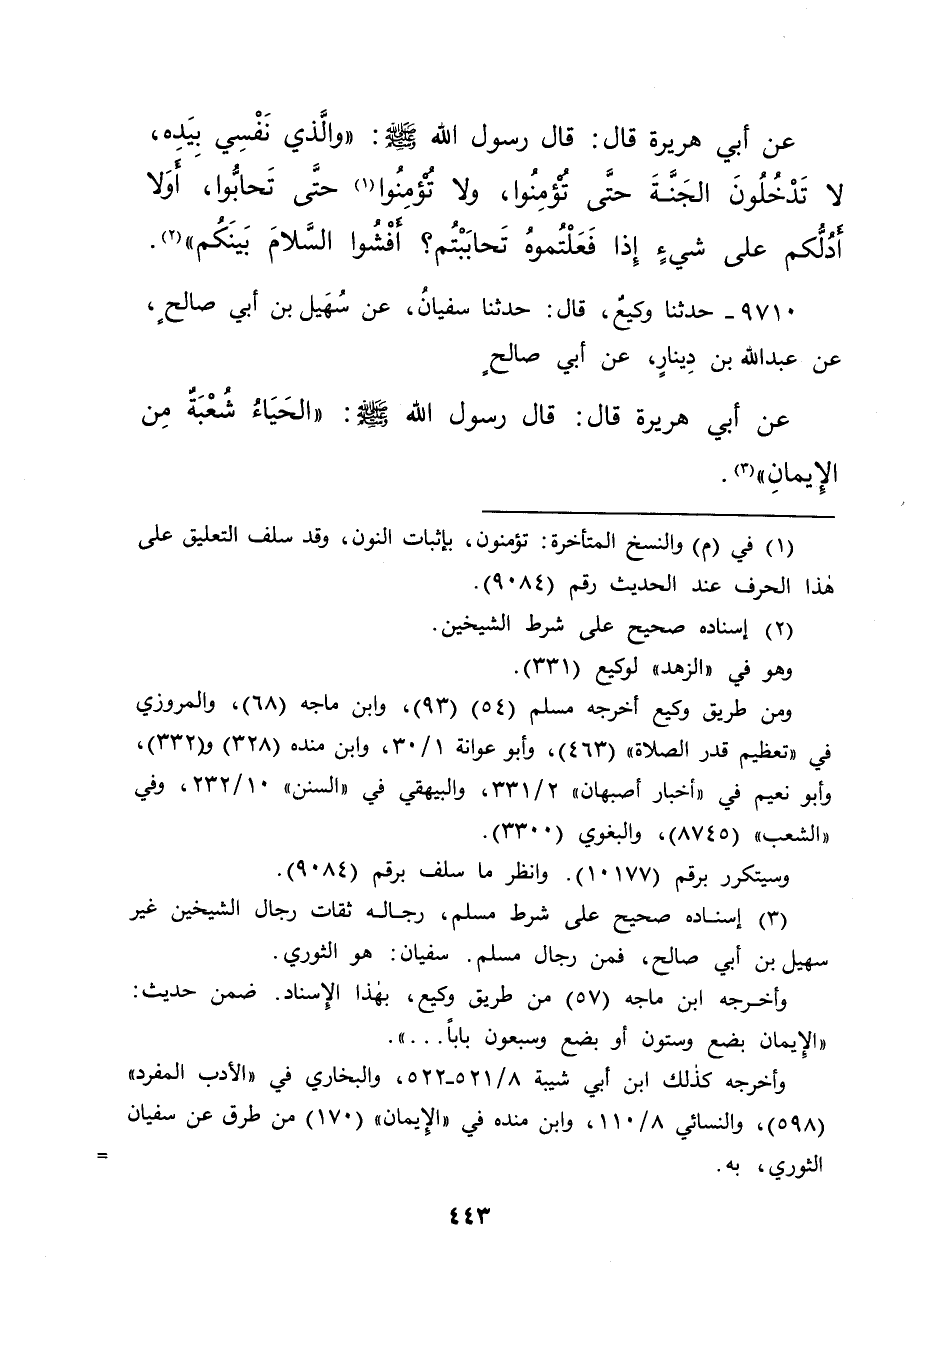 عن أبي هريرة قال: قال رسول الله ﷺ: «والَّذي نَفْسِي بِيَدِه،
لا تَدْخُلُونَ الجَنَّةَ حتَّى تُؤْمِنُوا، ولا تُؤْمِنُوا(١) حتَّى تَحابُّوا، أَوَلا
أَدُلُّكم على شيءٍ إِذا فَعَلْتُموهُ تَحابَبْتُم؟ أَفْشُوا السَّلامَ بَينَكُم»(٢).
٩٧١٠ـ حدثنا وكيعٌ، قال: حدثنا سفيانُ، عن سُهَيل بن أبي صالحٍ،
عن عبدالله بن دِينارٍ، عن أبي صالحٍ
عن أبي هريرة قال: قال رسول الله ﷺ: «الحَيَاءُ شُعْبَةٌ مِن
الإِيمانِ»(٣).
(١) في (م) والنسخ المتأخرة: تؤمنون، بإثبات النون، وقد سلف التعليق على
هٰذا الحرف عند الحديث رقم (٩٠٨٤).
(٢) إسناده صحيح على شرط الشيخين.
وهو في «الزهد» لوكيع (٣٣١).
ومن طريق وكيع أخرجه مسلم (٥٤) (٩٣)، وابن ماجه (٦٨)، والمروزي
في «تعظيم قدر الصلاة» (٤٦٣)، وأبو عوانة ٣٠/١، وابن منده (٣٢٨) و(٣٣٢)،
وأبو نعيم في «أخبار أصبهان» ٣٣١/٢، والبيهقي في «السنن» ٢٣٢/١٠، وفي
«الشعب» (٨٧٤٥)، والبغوي (٣٣٠٠).
وسيتكرر برقم (١٠١٧٧). وانظر ما سلف برقم (٩٠٨٤).
(٣) إسنـاده صحيح على شرط مسلم، رجـالـه ثقات رجال الشيخين غير
سهيل بن أبي صالح، فمن رجال مسلم. سفيان: هو الثوري.
وأخـرجه ابن ماجه (٥٧) من طريق وكيع، بهٰذا الإسناد. ضمن حديث:
«الإيمان بضع وستون أو بضع وسبعون باباً...».
وأخرجه كذٰلك ابن أبي شيبة ٥٢١/٨ـ٥٢٢، والبخاري في «الأدب المفرد»
(٥٩٨)، والنسائي ١١٠/٨، وابن منده في «الإيمان» (١٧٠) من طرق عن سفيان
الثوري، به.
=
٤٤٣